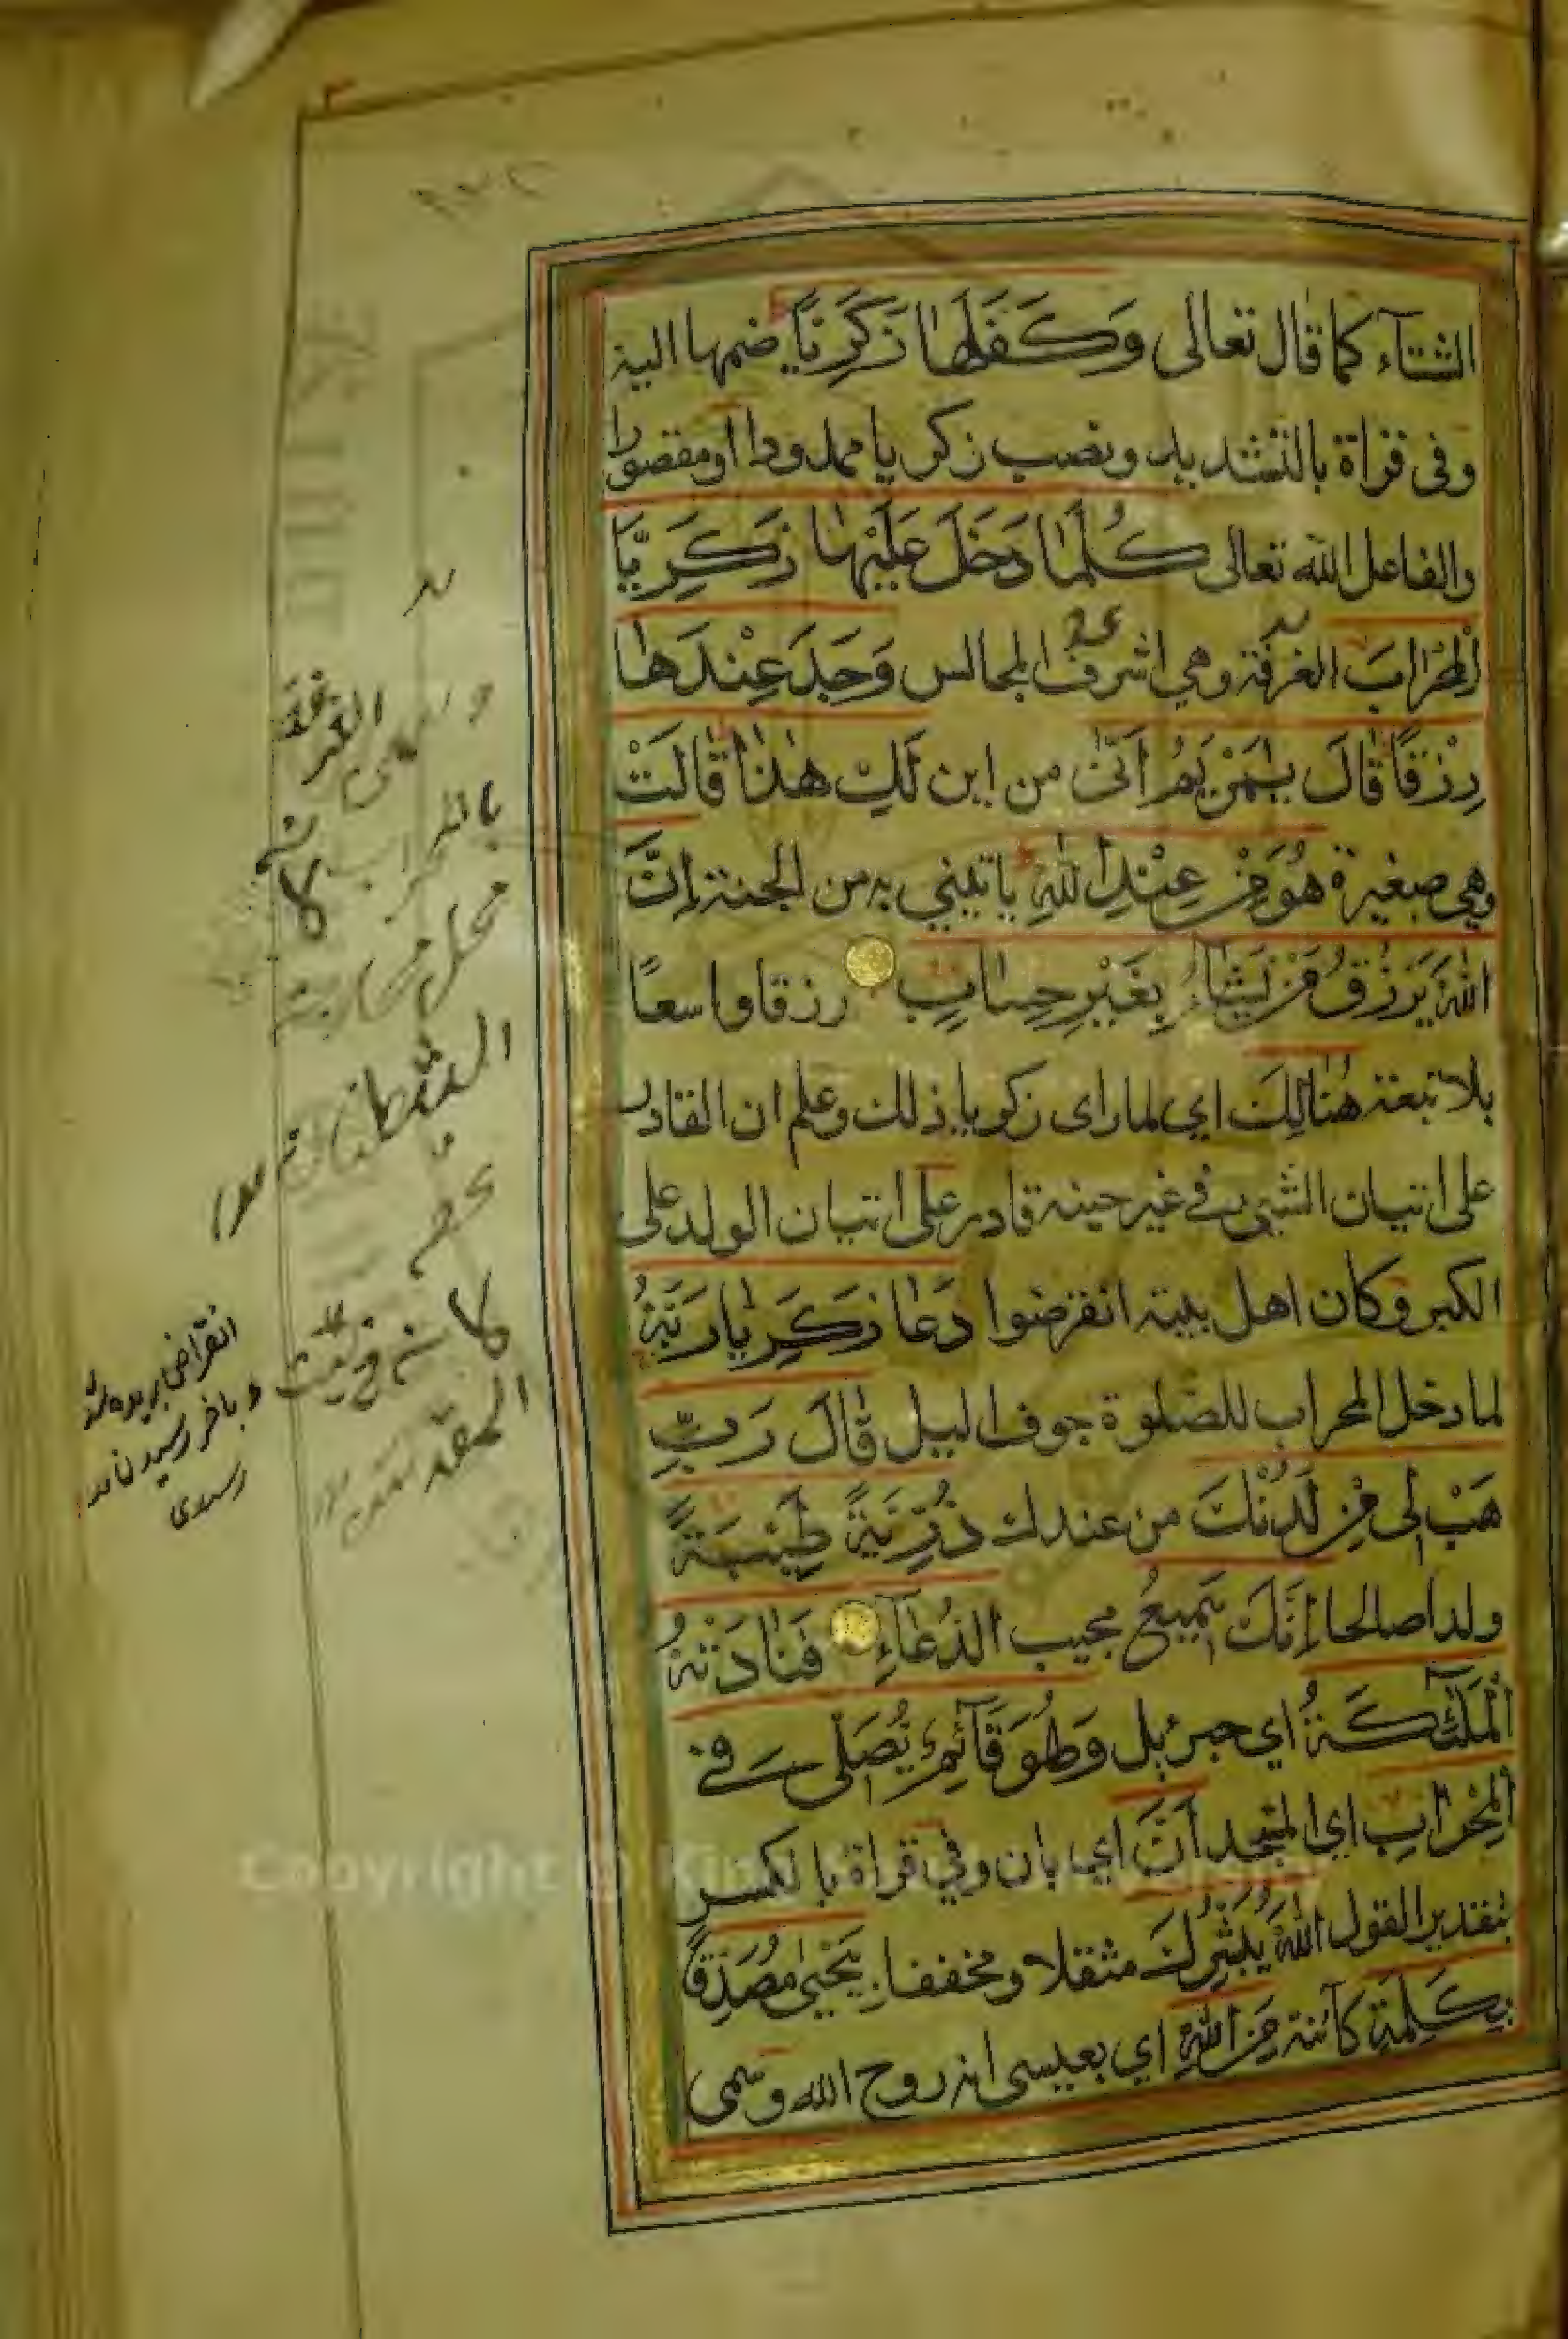 الشتآء كما قال تعالى وَكَفَلَهٰا زَكَرِيَّا ضمها اليه
وفى قراة بالتشديد ونصب زكريا ممدودا او مقصورا
والفاعل الله تعالى كُلَّمٰا دَخَلَ عَلَيْهٰا زَكَرِيَّا
الْمِحْرٰابَ الغرفة وهي اشرف المجالس وَجَدَ عِنْدَهٰا
رِزْقًا قٰالَ يٰمَرْيَمُ اَنّٰى من اين لَكِ هٰذٰا قٰالَتْ
وهي صغيرة هُوَ مِنْ عِنْدِ اللّٰهِ ياتيني به من الجنة اِنَّ
اللّٰهَ يَرْزُقُ مَنْ يَشٰآءُ بِغَيْرِ حِسٰابٍ رزقا واسعًا
بلا تبعة هُنٰالِكَ اي لما راى زكريا ذلك وعلم ان القادر
على اتيان الشيء في غير حينه قادر على اتيان الولد على
الكبر وكان اهل بيته انقرضوا دَعٰا زَكَرِيّٰا رَبَّهُ
لما دخل المحراب للصلوة جوف الليل قٰالَ رَبِّ
هَبْ لِى مِنْ لَدُنْكَ من عندك ذُرِّيَّةً طَيِّبَةً
ولدا صالحا اِنَّكَ سَمِيعُ مجيب الدُّعٰآءِ فَنٰادَتْهُ
الْمَلٰٓئِكَةُ اي جبرئل وَهُوَ قَآئِمٌ يُصَلِّى فِى
الْمِحْرٰابِ اي المسجد اَنَّ اي بان وفي قراة بالكسر
بتقدير القول اللّٰهَ يُبَشِّرُكَ مثقلا ومخففا بِيَحْيىٰ مُصَدِّقًا
بِكَلِمَةٍ كآئنة مِنَ اللّٰهِ اي بعيسى انه روح الله وسمى
الغرفة
بالمحراب لانه
محل محاربة
الشيطان
كانه
المقدس
انقراض بريده شدن
و باخر رسيدن